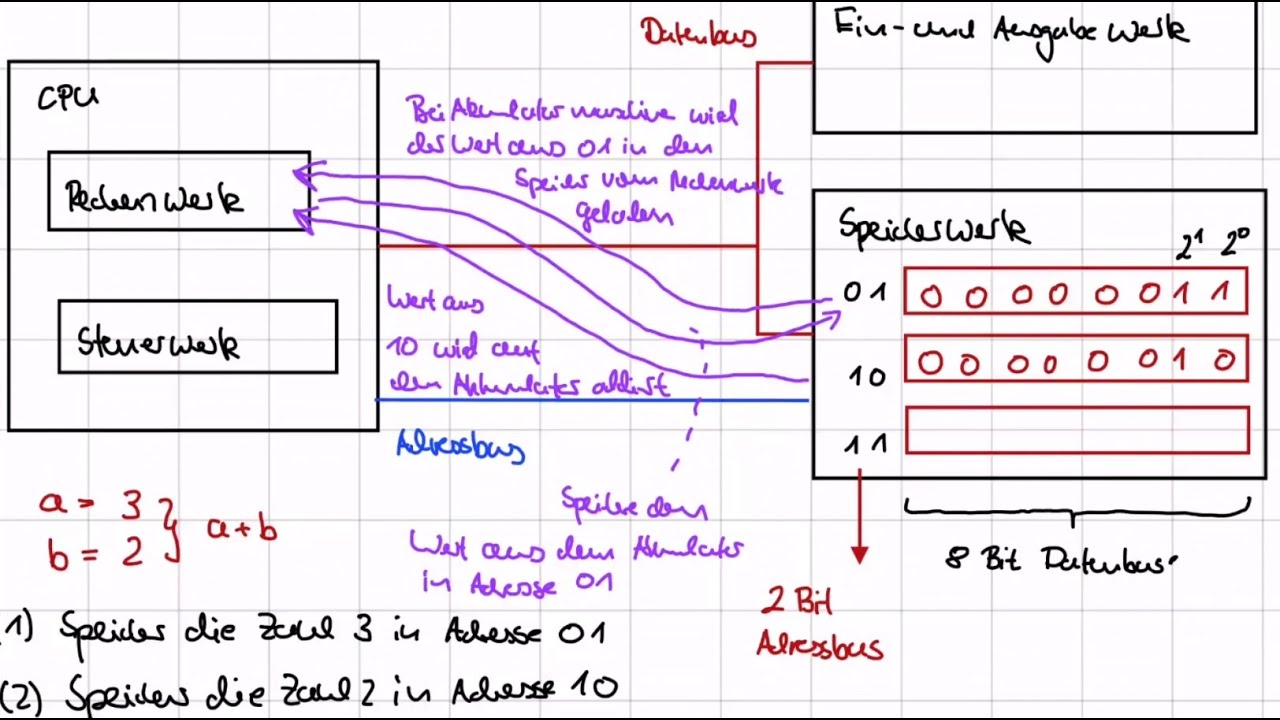 Datenbus
Ein- und Ausgabewerk
CPU
Bei Akkumulator maschine wird
der Wert aus 01 in den
Speicher vom Rechenwerk
geladen
Rechenwerk
Speicherwerk
2¹ 2⁰
01 0 0 0 0 0 0 1 1
Wert aus
10 wird auf
den Akkumulator addiert
Steuerwerk
10 0 0 0 0 0 0 1 0
11
Adressbus
a = 3
b = 2
a + b
Speichere den
Wert aus dem Akkumulator
in Adresse 01
8 Bit Datenbus
2 Bit
Adressbus
1) Speicher die Zahl 3 in Adresse 01
(2) Speicher die Zahl 2 in Adresse 10